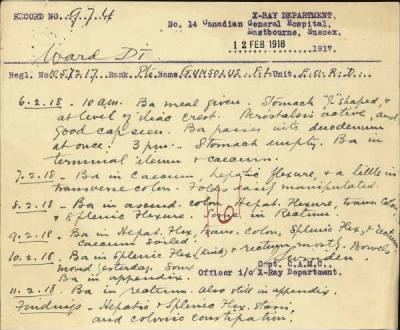 RECORD NO. 974
X-RAY DEPARTMENT.
No. 14 Canadian General Hospital,
Eastbourne, Sussex.
12 FEB 1918 1917.
Ward D1
Regl. No. Rank. Pte. Name. Unit.
6.2.18. - 10 A.M. Ba meal given. Stomach "J" shaped, &
at level of iliac crest. Peristalsis active, and
good cap seen. Ba passes into duodenum
at once. 3 p.m. - Stomach empty. Ba in
terminal ileum & caecum.
7.2.18 - Ba in Caecum, hepatic flexure, & a little in
transverse colon. Folds easily manipulated.
8.2.18 - Ba in ascend. colon, Hepat. Flexure, trans. Colon,
& Splenic Flexure. in Rectum.
9.2.18 - Ba in Hepat. Flex, trans. Colon, Splenic Flex, & rectum
Caecum soiled.
10.2.18 - Ba in Splenic Flex (kink) & rectum mostly. Bowels
moved yesterday. Some
Ba in appendix.
Capt. C.A.M.C.,
Officer i/c X-Ray Department.
11.2.18. Ba in rectum. Also still in appendix.
Findings - Hepatic & Splenic Flex. Stasis,
and colonic constipation.